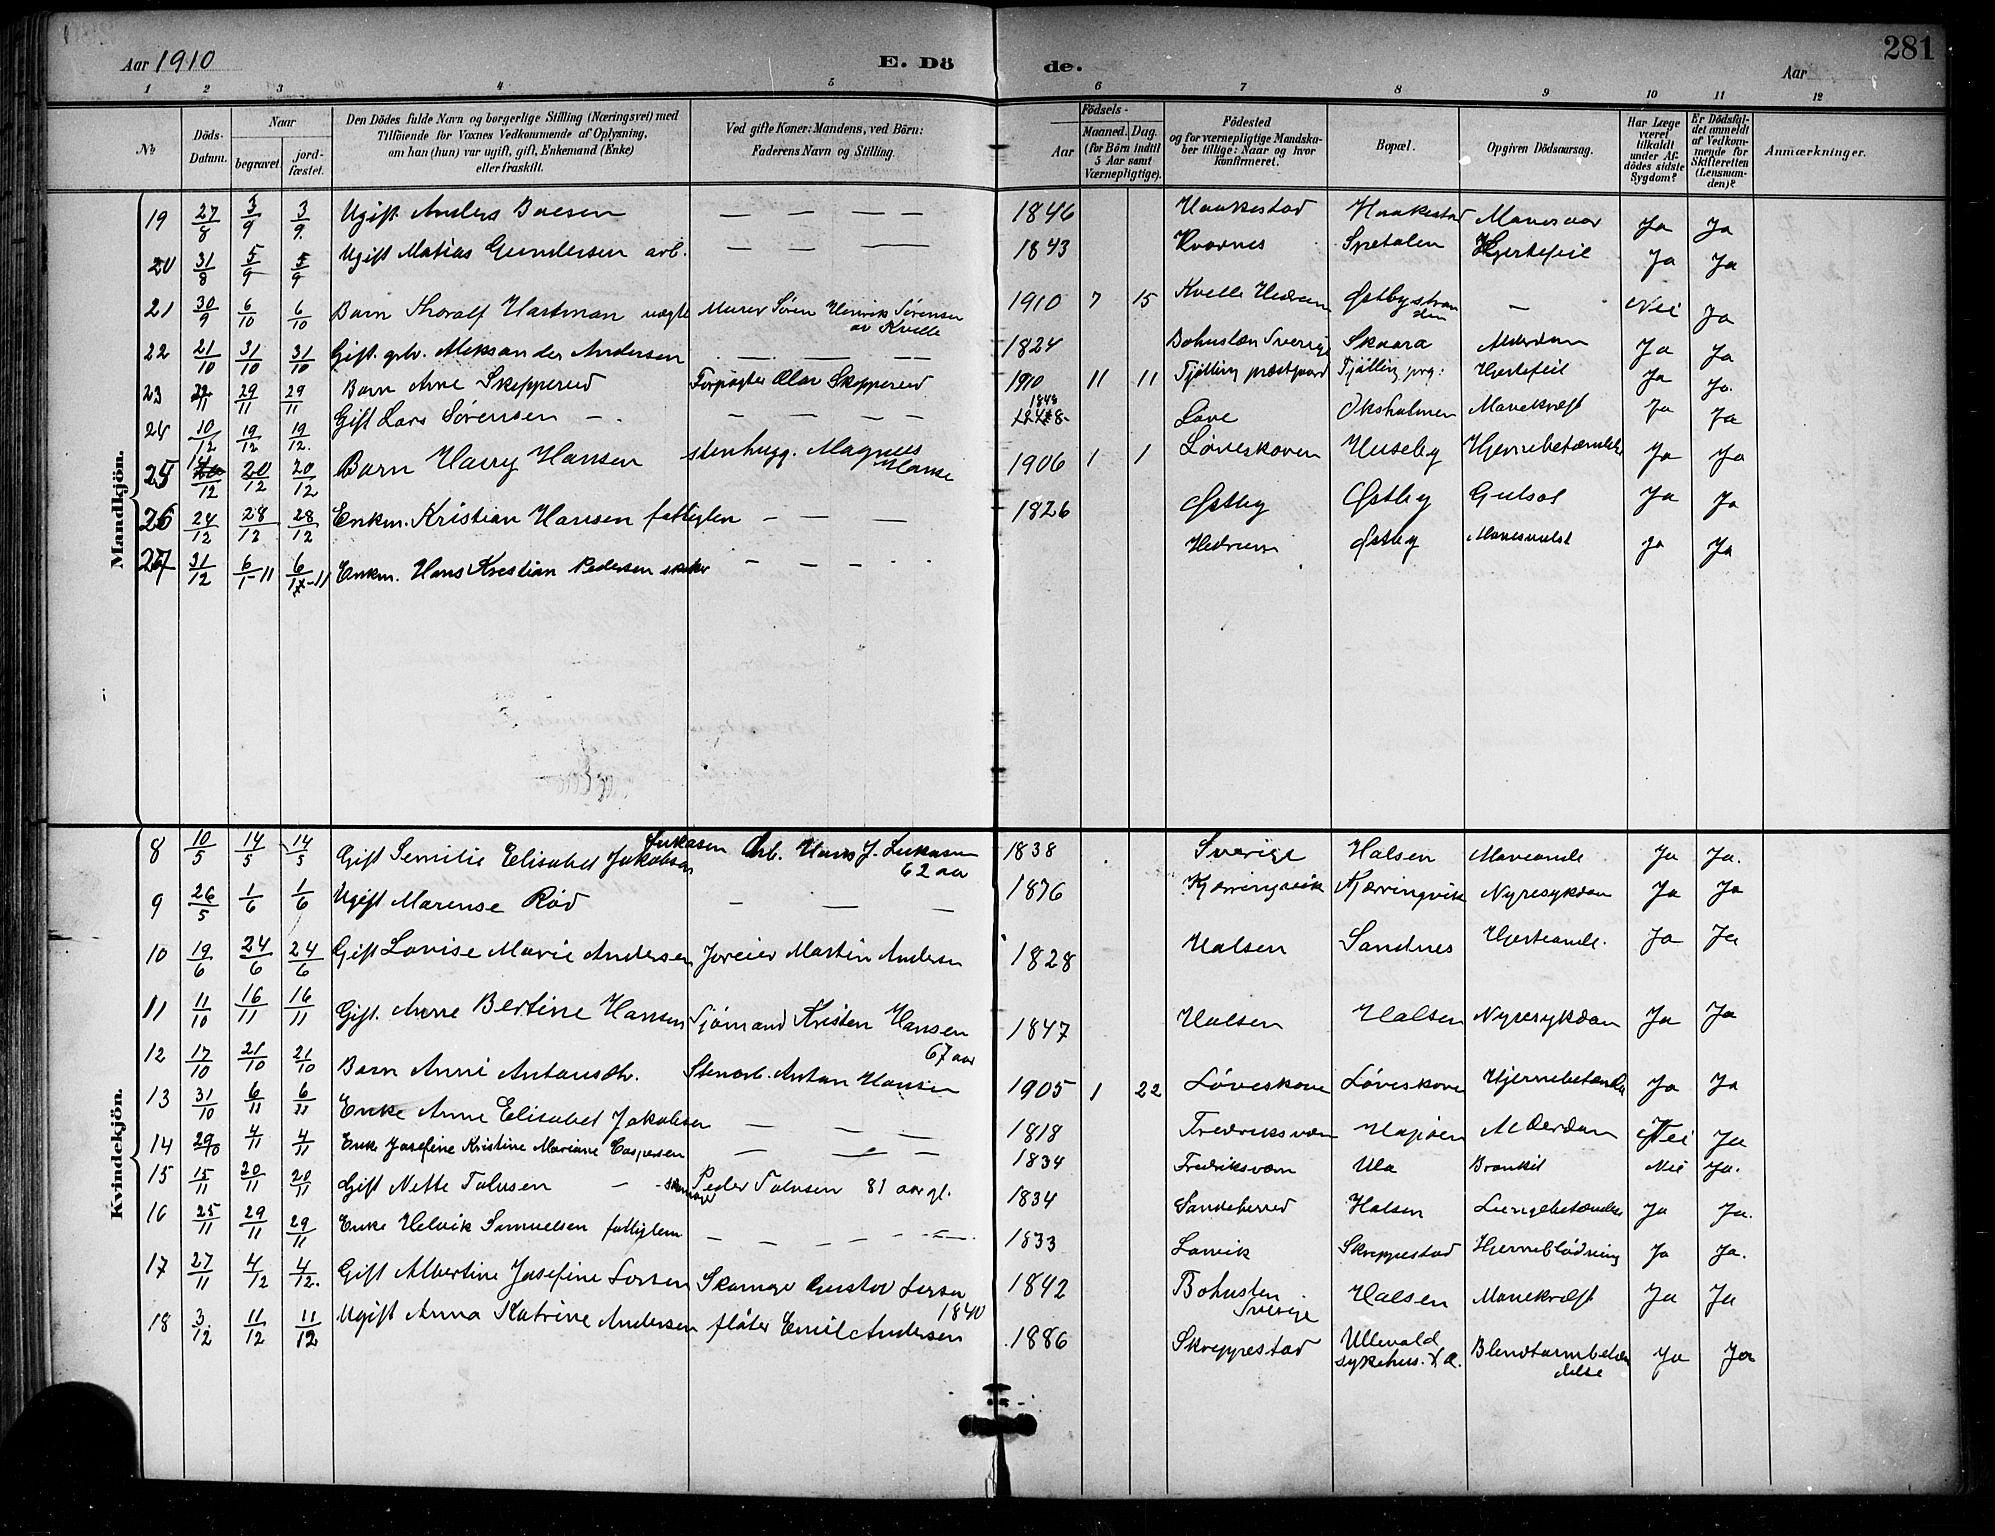 Aar 1910 E. Dö de. Aar 281
1 2 3 4 5 6 7 8 9 10 11 12
No
Döds-Datum.
Naar
begravet.
jord-fæstet.
Den Dödes fulde Navn og borgerlige Stilling (Næringsvei) med
Tilföiende for Voxnes Vedkommende af Oplysning,
om han (hun) var ugift, gift, Enkemand (Enke)
eller fraskilt.
Ved gifte Koner: Mandens, ved Börn:
Faderens Navn og Stilling.
Födsels-
Aar
Maaned. Dag.
(for Börn indtil
5 Aar samt
Værnepligtige).
Födested
og for værnepligtige Mandska-
ber tillige: Naar og hvor
konfirmeret.
Bopæl.
Opgiven Dödsaarsag.
Har Læge
været
tilkaldt
under Af-
dödes sidste
Sygdom?
Er Dödsfal-
det anmeldt
af Vedkom-
mende for
Skifteretten
(Lensman-
den)?
Anmærkninger.
Mandkjön.
19 27/8 3/9 3/9 Ugift Anders Boesen — — — — 1846 Haakestad Haakestad Mavesaar Ja Ja
20 31/8 5/9 5/9 Ugift Matias Gundersen arb. — — — 1843 Kvarnes Snetalen Hjertefeil Ja Ja
21 30/9 6/10 6/10 Barn Thoralf Hartman uegte Murer Søren Henrik Sørensen av Kvelle 1910 7 15 Kvelle Hedrum Østbystranden — Nei Ja
22 21/10 31/10 31/10 Gift. arb. Aleksander Andersen — — — — 1824 Bohuslæn Sverige Skaara Alderdom Ja Ja
23 /11 29/11 29/11 Barn Arne Skeppered Forpagter Olav Skeppered 1910 11 11 Tjølling præstgaard Tjølling prg: Hjertefeil Ja Ja.
24 10/12 19/12 19/12. Gift Lars Sørensen — — — — — 1848 Lave Oksholmen Mavekræft Ja Ja
25 14/12 20/12 20/12 Barn Harry Hansen stenhugg. Magnus Hanse 1906 1 1 Løveskoven Huseby Hjernebetændelse Ja Ja
26 24/12 28/12 28/12 Enkm. Kristian Hansen fattiglem — — — 1826 Østby Østby Gulsot Ja Ja
27 31/12 6/1-11 6/1-11 Enkm. Hans Kristian Pedersen — — — . Hedrum Østby Ja Ja
Kvindekjön.
8 10/5 14/5 14/5 Gift Semilie Elisabet Jakobsen Lukasen Arb. Hans J. Lukasen 62 aar 1838 Sverige Halsen Maveonde Ja Ja.
9 26/5 1/6 1/6 Ugift Marense Rød — — — 1876 Kjærringvik Kjærringvik Nyresykdom Ja Ja
10 19/6 24/6 24/6 Gift Lovise Marie Andersen Joreier Martin Andersen 1828 Halsen Sandnes Hjerteonde. Ja Ja
11 11/10 16/11 16/11 Gift. Anne Bertine Hansen Sjømand Kristen Hansen 67 aar 1847 Halsen Halsen Nyresykdom Ja Ja
12 17/10 21/10 21/10 Barn Anni Antonsdtr. Stenarb. Anton Hansen 1905 1 22 Løveskove Løveskove Hjernebetændelse Ja Ja
13 31/10 6/11 6/11 Enke Anne Elisabet Jakobsen — — — 1818 Fredriksværn Alderdom Nei Ja
14 29/10 4/11 4/11 Enke Josefine Kristine Mariane Caspersen — — — 1834 Fredriksværn Ula Bronkit Nei Ja.
15 15/11 20/11 20/11 Gift Nette Tolusen — - skomager Peder Tolusen 81 aar gl. 1834 Sandeherred Halsen Lungebetændelse Ja Ja.
16 25/11 29/11 29/11 Enke Helvik Samuelsen fattiglem — — — — — 1833 Larvik Skreppestad Hjerneblødning Ja Ja.
17 27/11 4/12 4/12. Gift Albertine Josefine Larsen Skomage Gustav Larsen 1840 1842 Bohuslen Sverige Halsen Mavekræft Ja Ja
18 3/12 11/12 11/12 Ugift Anna Katrine Andersen fløter Emil Andersen 1886 Skreppestad Ullevold sykehus. Kr.a. Blindtarmbetændelse Ja Ja